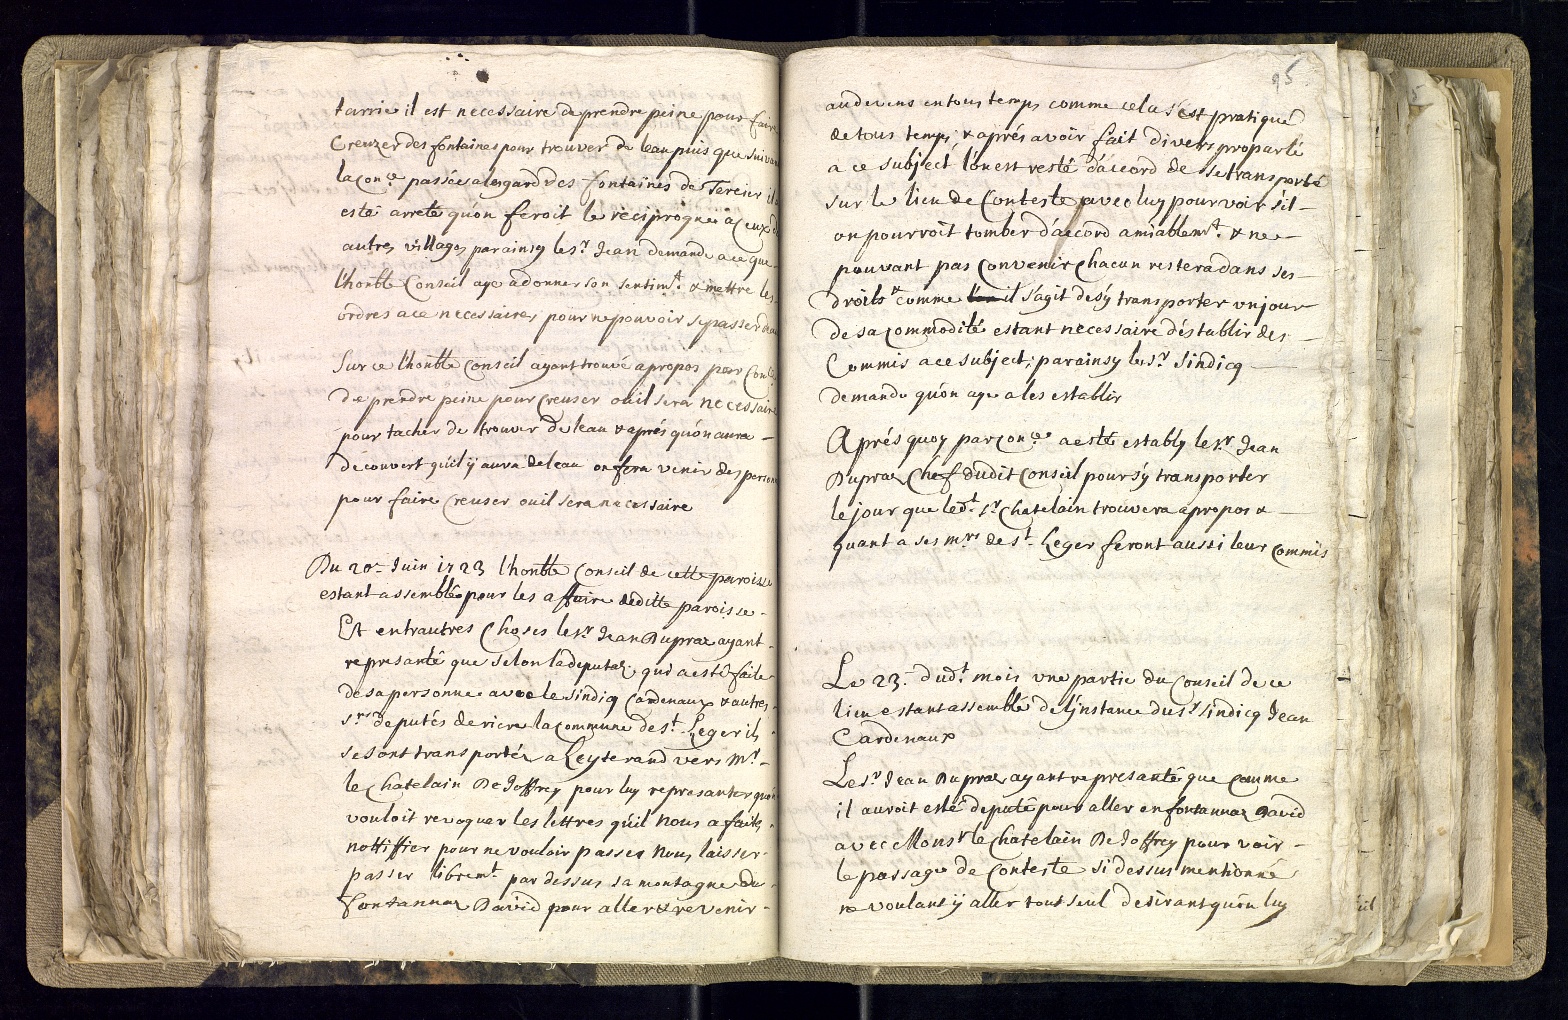 tarrie il est necessaire de prendre peine pour faire
Creuzer des fontaines pour trouver de leau puis que suivant
la con.ce passée a lesgard des fontaines de Tercier il a
esté arreté quon feroit le reciproque a ceux
autres villages par ainsy le s.r Jean demande a ce que
l'honble Conseil aye a donner son sentim.t & mettre les
ordres a ce necessaires pour ne pouvoir se passer
Sur ce l'honble Conseil ayant trouvé a propos par con.ce
De prendre peine pour Creuser ou il sera necessaire
pour tacher de trouver de leau & aprés qu'on aura
decouvert qu'il y aura de leau on fera venir des
pour faire Creuser ou il sera necessaire
Du 20.e Juin 1723 l'honble Conseil de cette paroisse
estant assemblé pour les affaire de ditte paroisse
Et entrautres Choses le s.r Jean Dupraz ayant
represanté que selon la deputa.n qui a esté faite
de sa personne avec le Sindiq Cardenaux & autres
s.rs deputés de riere la commune de s.t Leger ils
se sont transportéz a Leyterand vers m.r
le Chatelain De Joffrey pour luy represanter
vouloit revoquer les lettres qu'il nous a faits
nottiffier pour ne vouloir passer nous laisser
passer librem.t par dessus sa montagne de
fontannaz David pour aller & revenir
95
au devens en tous temps comme cela s'est pratiqué
de tous temps, & aprés avoir fait divers proparlé
a ce subject l'on est resté d'accord de se transporté
sur le lieu de Conteste avec luy pour voir s'il
on pourroit tomber d'accord amiablem.t & ne
pouvant pas Convenir Chacun restera dans ses
droits & comme il s'agit de s'y transporter un jour
de sa commodité estant necessaire d'establir des
Commis a ce subject; par ainsy le s.r Sindicq
demande qu'on aye a les establir
Aprés quoy par con.ce a esté estably le s.r Jean
Dupraz Chef dudit Conseil pour s'y transporter
le jour que led.t s.r Chatelain trouvera a propos &
quant a ses m.rs de s.t Leger feront aussi leur commis
Le 23.e dud.t mois une partie du Conseil de ce
lieu estant assemblé de l'instance du s.r Sindicq Jean
Cardenaux
Le s.r Jean Dupraz ayant represanté que comme
il auroit esté deputé pour aller en fontannaz David
avec Mons.r le Chatelain De Joffrey pour voir
le passage de Conteste si dessus mentionné
ne voulant y aller tout seul desirant qu'on luy